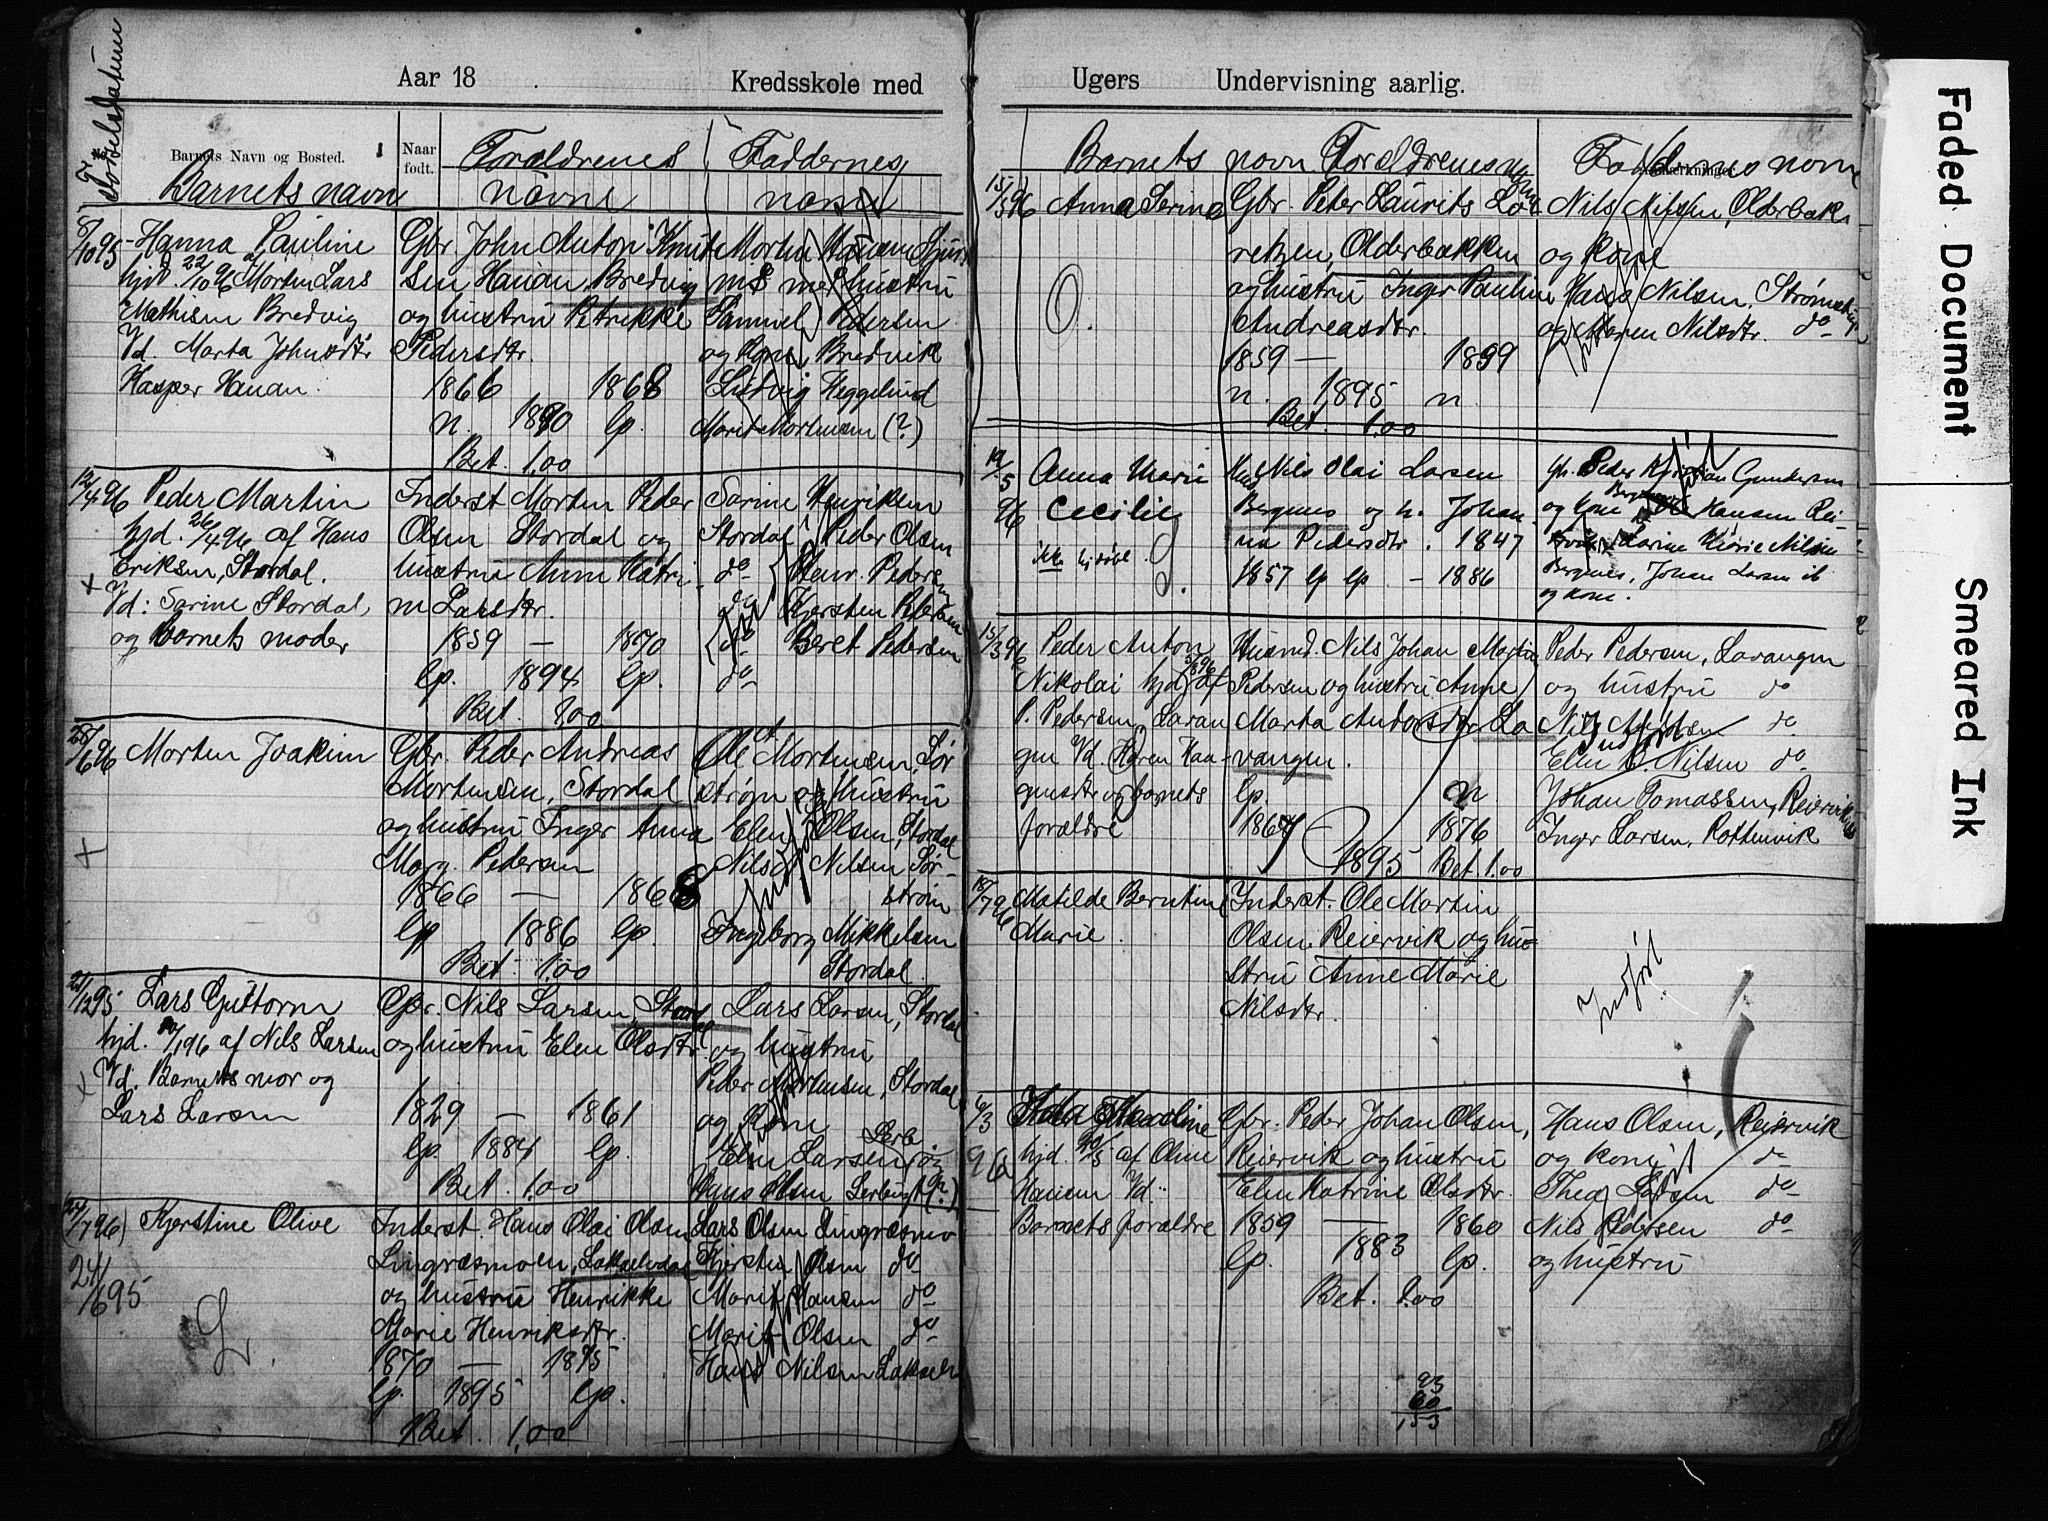 Aar 18 Kredsskole med
Fødselsdatum
Barnets Navn og Bosted.
Naar født.
Forældrenes
Faddernes
Barnets navn
navne
navne
8/10 95 Hanna Pauline
hjd. 22/10 96 af Morten Lars
Mathisen Bredvig
Vd. Marta Johnsdtr
Kasper Hansen.
Gbr John Anton Knut
sen Hansen, Bredvig
og hustru Petrikke
Pedersdtr.
1866 1868
n. 1890 lp.
Bet. 1,00
Samuel Pedersen
og Kone, Bredvik
Ludvig Heggelund
Marit Mortensen (?)
12/4 96 Peder Martin
hjd. 26/4 96 af Hans
Eriksen, Stordal.
+ Vd: Sarine Stordal,
og barnets moder
Inderst Morten Peder
Olsen Stordal og
hustru Anne Katri
n Larsdtr.
1859 — 1870
lp. 1894 lp.
Bet. 1.00
Sarine Henriksen
Stordal, Peder Olsen
do Henr. Pedersen
do Kjersten Pedersen
do Beret Pedersen
do
28/6 96 Morten Joakim
+
Gbr. Peder Andreas
Mortensen, Stordal
og hustru Inger Anna
Marg. Pedersen
1866 — 1868
lp 1886 lp.
Bet. 1.00
Ole Mortensen, Sør
strøm og hustru
Elen Olsen, Stordal
Nils Nilsen Sør-
strøm
Ingeborg Mikkelsen
Stordal.
Indført
21/12 95 Lars Guttorm
hjd. 1/96 af Nils Larsen
+ Vd. Barnets mor og
Lars Larsen
Gbr. Nils Larsen, Stordal
og hustru Elen Olsdtr.
1829 — 1861
lp. 1884 lp.
Bet. 1.00
Lars Larsen, Stordal
og hustru
Peder Mortensen, Stordal
og Kone
Elen Larsen
Hans Olsen Lerbugt (?)
(24/7 96) Kjerstine Olive
24/6 95
Inderst. Hans Olai Olsen
Lingræsmoen, Lakselvdal
og hustru Henrikke
Marie Henriksdtr.
1870 — 1875
lp. 1895 lp.
Bet. 1,00
Lars Olsen Lingræsmo
Kjersten Olsen do
Marit Hansen do
Marit Olsen do
Hans Nilsen Lakselv
Ugers Undervisning aarlig.
Barnets navn Forældrenes navne
Faddernes navne
15/3 96 Anna Serine
Gbr. Peter Laurits Lo
retzen, Olderbakken
og hustru Inger Pauline
Andreasdtr.
1859 — 1899
n. 1895 n
Bet. 1.00
Nils Nilsen, Olderbakk
og Kone
Hans Nilsen, Strømstugu
og Maren Nilsdtr. do
19/5 96 Anna Marie
Cecilie
ikke hj.døbt.
Nils Olai Larsen
Bergnes og h. Johan
na Pedersdtr. 1847
1857 lp lp — 1886
Peder Kristian Gundersen
og kone
Larine Marie Nilsen
Bergnes, Johan Larsen ib
og kone.
15/3 96 Peder Anton
Nikolai hjd 5/4 96 af
P. Pedersen Lavan
gen Vd. Karen Haa-
gensdtr og barnets
forældre
Husmd. Nils Johan Martin
Pedersen og hustru Anne
Marta Andersdtr. La
vangen.
lp. n
1867 — 1876
1895 Bet 1.00
Peder Pedersen, Lavangen
og hustru do
Nils Nilsen do
Elen Nilsen do
Johan Tomassen, Reiervik
Inger Larsen, Rottenvik
Indført
18/7 96 Matilde Berntine
Marie.
Inderst. Ole Martin
Olsen, Reiervik og hu-
stru Anne Marie
Nilsdtr.
Indført
6/3 96
Karoline
hjd. af Oline
Hansen Vd:
Barnets forældre
Gbr. Peder Johan Olsen,
Reiervik og hustru
Elen Katrine Olsdtr.
1859 — 1860
lp. 1883 lp.
Bet. 1.00
Hans Olsen, Reiervik
og kone do
Thea Larsen do
Nils Pedersen do
og hustru
93
60
153
Faded Document
Smeared Ink